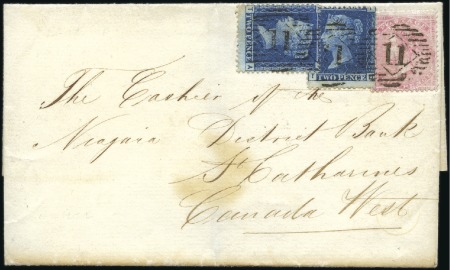 TWO PENCE
11
1
TWO PENCE
11
The Cashier of the
Niagara District Bank
St Catharines
Canada West